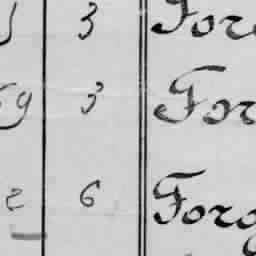 3 For
9 3 For
2 6 Forg